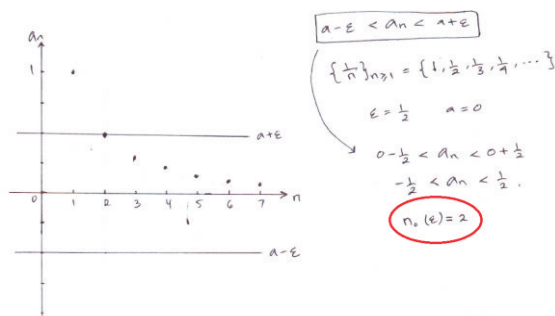 an
1
a+ε
0 1 2 3 4 5 6 7 n
a-ε
a-ε < an < a+ε
{1/n}n≥1 = {1, 1/2, 1/3, 1/4, ...}
ε = 1/2 a = 0
0 - 1/2 < an < 0 + 1/2
-1/2 < an < 1/2.
n₀(ε) = 2